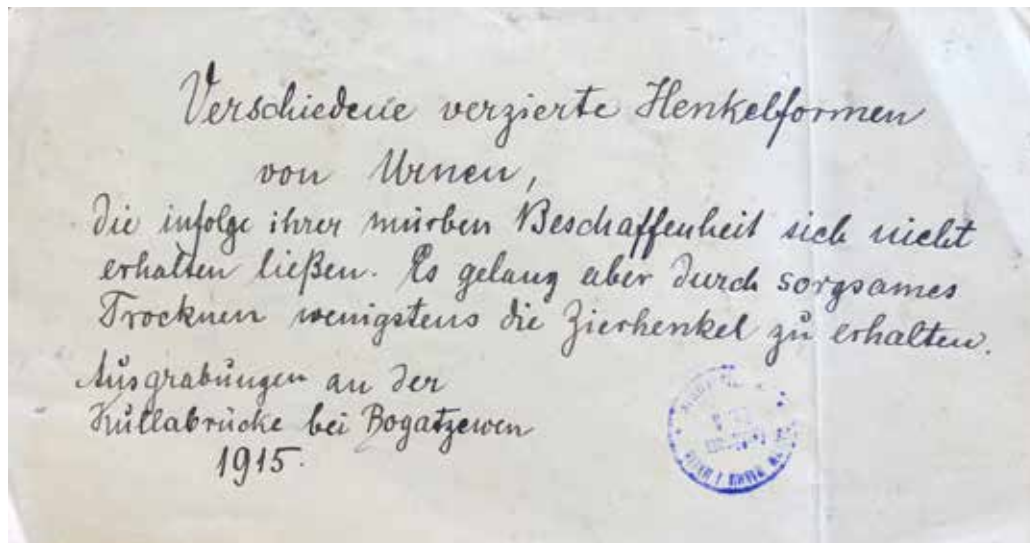 Verschiedene verzierte Henkelformen
von Urnen,
die infolge ihrer mürben Beschaffenheit sich nicht
erhalten ließen. Es gelang aber durch sorgsames
Trocknen wenigstens die Zierhenkel zu erhalten.
Ausgrabungen an der
Kullabrücke bei Bogatzewen
1915.